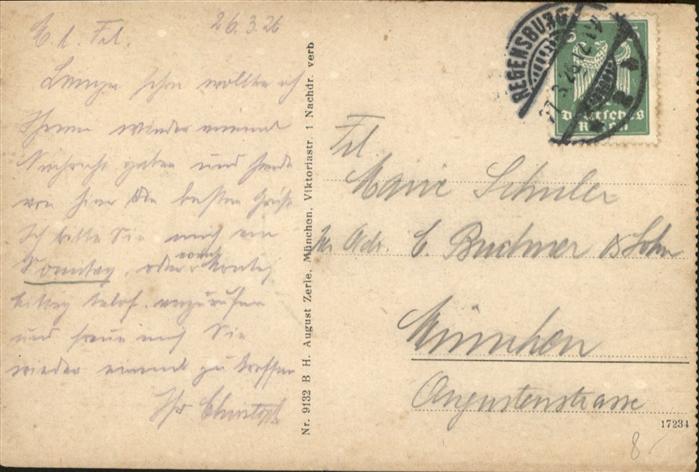 26.3.26
Frl.
Lange schon wollte ich
Ihnen wieder einmal
Nachricht geben und sende
von hier die besten Grüße
Ich bitte Sie mich am
Sonntag, oder
telef. anzurufen
und freue mich Sie
wieder einmal zu treffen
Ihr Christoph
Nr. 9132 B H. August Zerle, München, Viktoriastr. 1 Nachdr. verb
REGENSBURG
Deutsches
Reich
Frl
Marie Schuler
Adr. C. Buchner & Sohn
München
Augustenstrasse
17234
8